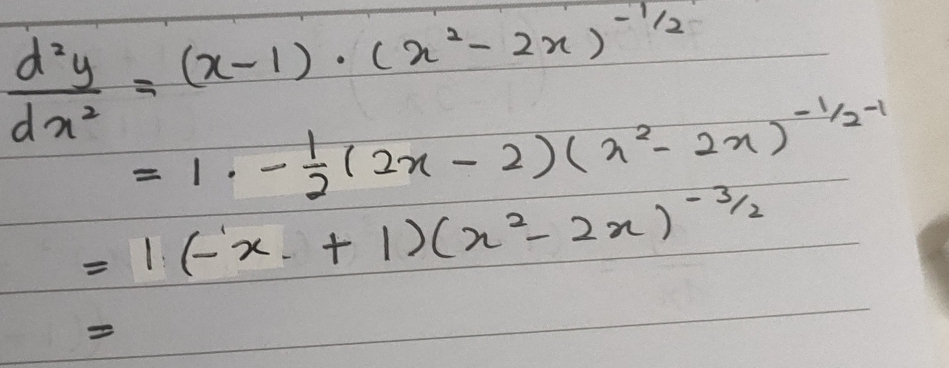 d²y/dx² = (x-1) · (x² - 2x)^-1/2
= 1 · - 1/2 (2x - 2)(x² - 2x)^-1/2-1
= 1 (-x + 1)(x² - 2x)^-3/2
=